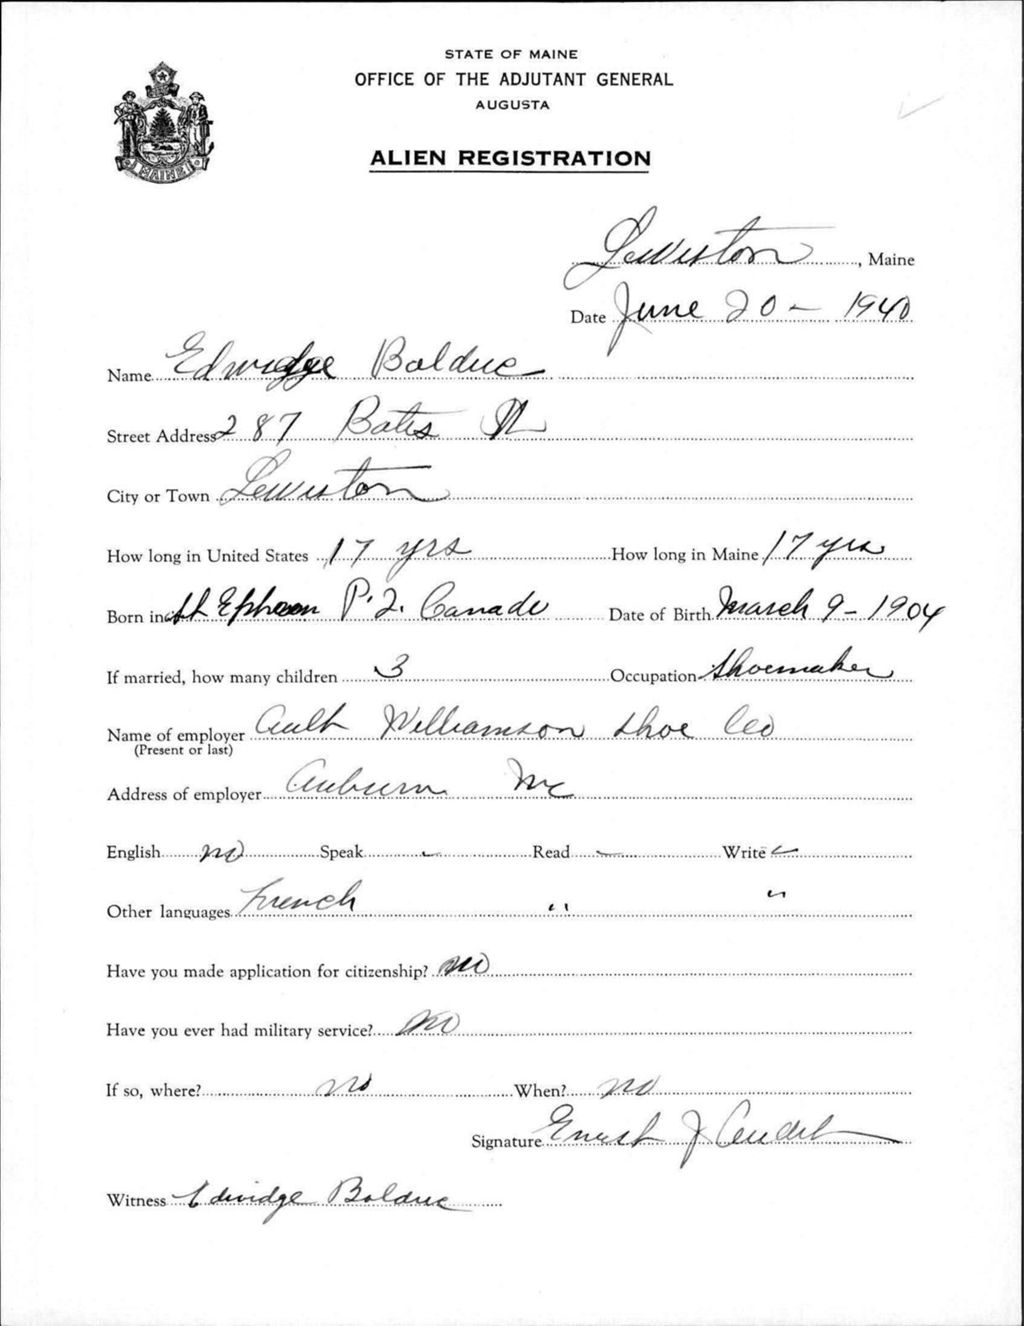 STATE OF MAINE
OFFICE OF THE ADJUTANT GENERAL
AUGUSTA
MAINE
ALIEN REGISTRATION
Lewiston, Maine
Date June 20 - 1940
Name Edwidge Bolduc
Street Address 287 Bates St
City or Town Lewiston
How long in United States 17 yrs How long in Maine 17 yrs
Born in St Ephrem P.Q. Canada Date of Birth March 9 - 1904
If married, how many children 3 Occupation Shoemaker
Name of employer Ault Williamson Shoe Co
(Present or last)
Address of employer Auburn Me
English no Speak - Read - Write -
Other languages French " "
Have you made application for citizenship? no
Have you ever had military service? no
If so, where? no When? no
Signature Ernest J Audet
Witness Edwidge Bolduc